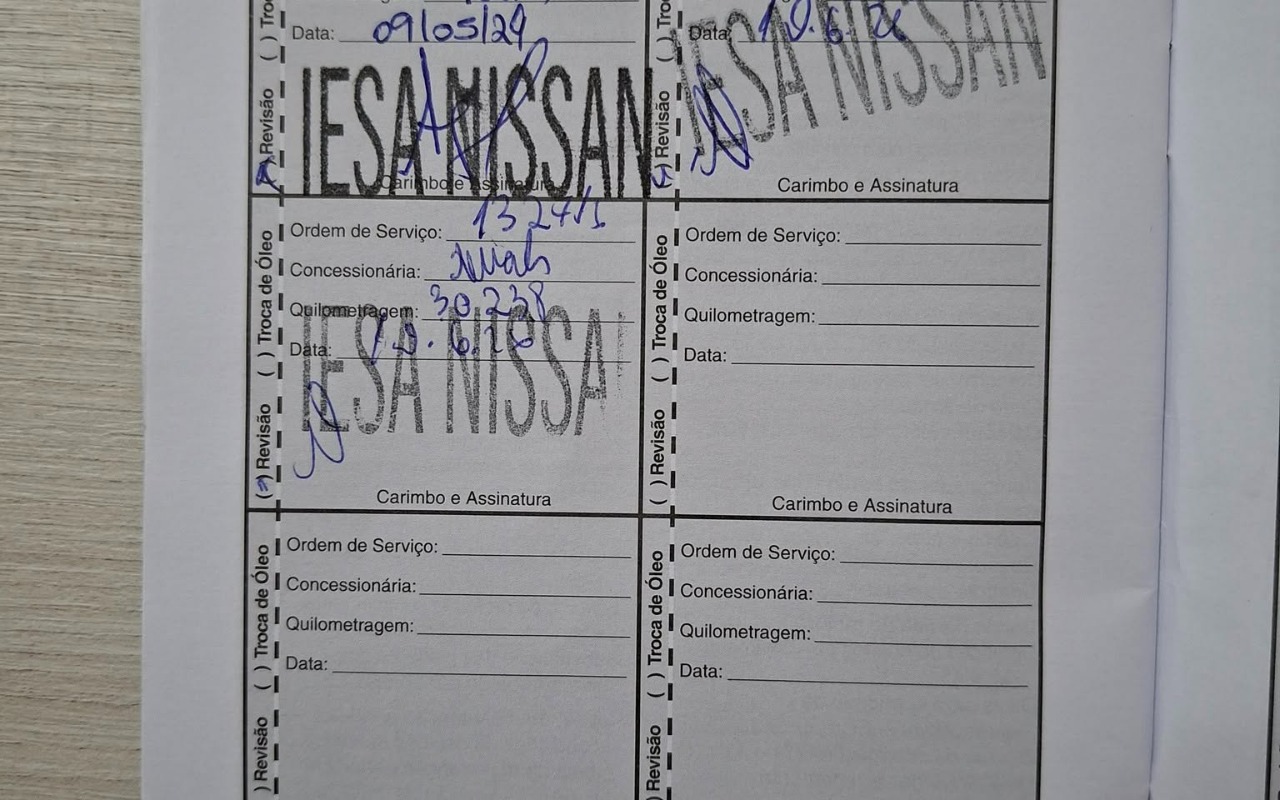 Data: 09/05/24
IESA NISSAN
Carimbo e Assinatura
( ) Revisão
Data:
IESA NISSAN
Carimbo e Assinatura
( ) Revisão
Ordem de Serviço:
Concessionária:
Quilometragem: 30.238
Data:
IESA NISSA
Carimbo e Assinatura
( ) Revisão ( ) Troca de Óleo
Ordem de Serviço:
Concessionária:
Quilometragem:
Data:
Carimbo e Assinatura
( ) Revisão ( ) Troca de Óleo
Ordem de Serviço:
Concessionária:
Quilometragem:
Data:
) Revisão ( ) Troca de Óleo
Ordem de Serviço:
Concessionária:
Quilometragem:
Data:
) Revisão ( ) Troca de Óleo